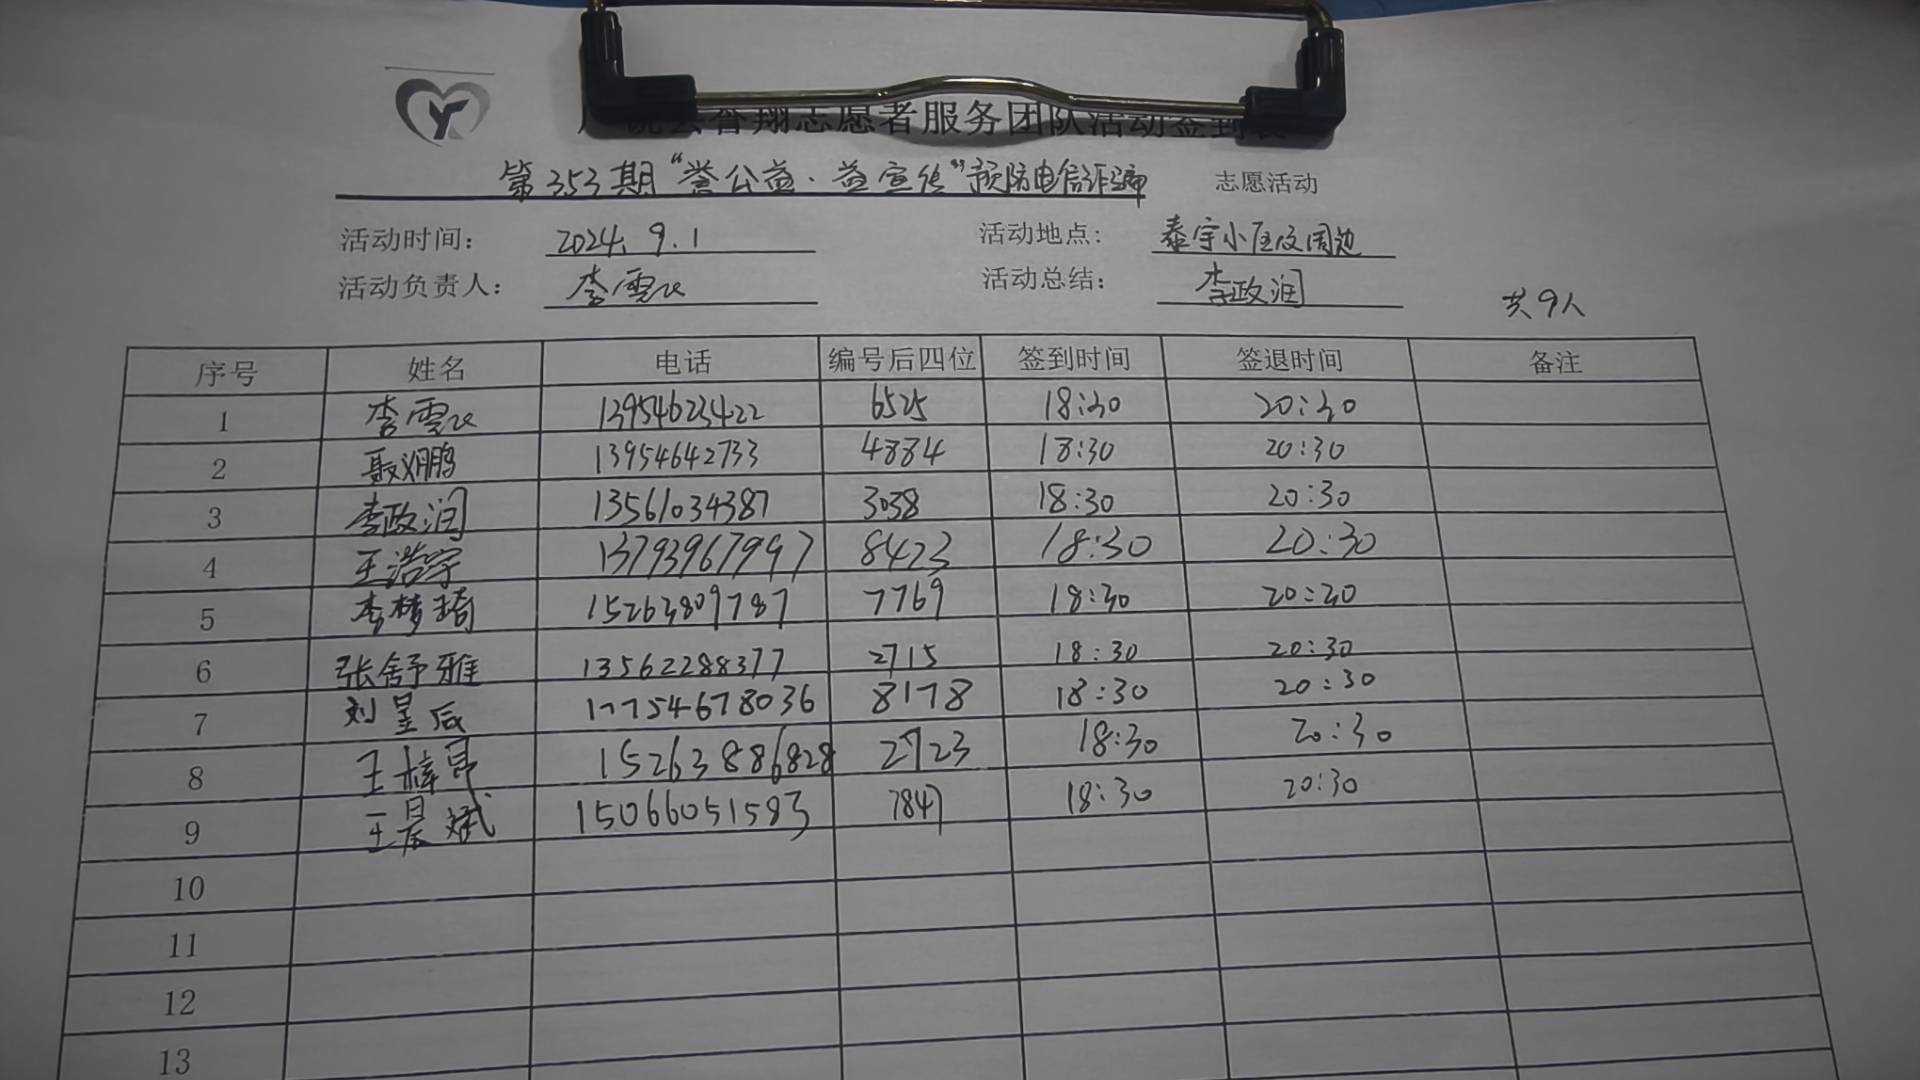 誉翔志愿者服务团队活动签到表
第353期“誉公益·益宣传”预防电信诈骗 志愿活动
活动时间: 2024.9.1 活动地点: 泰宇小区及周边
活动负责人: 李雪 活动总结: 李政润
共9人
序号 姓名 电话 编号后四位 签到时间 签退时间 备注
1 李雪 13954623422 6525 18:30 20:30
2 聂鹏 13954642733 4884 18:30 20:30
3 李政润 13561034387 3038 18:30 20:30
4 王浩宇 13793967997 8423 18:30 20:30
5 李梦琦 15263809787 7769 18:30 20:30
6 张舒雅 13562288377 2715 18:30 20:30
7 刘昱辰 17754678036 8178 18:30 20:30
8 王梓昂 15263886828 2723 18:30 20:30
9 王晨斌 15066051583 7847 18:30 20:30
10
11
12
13